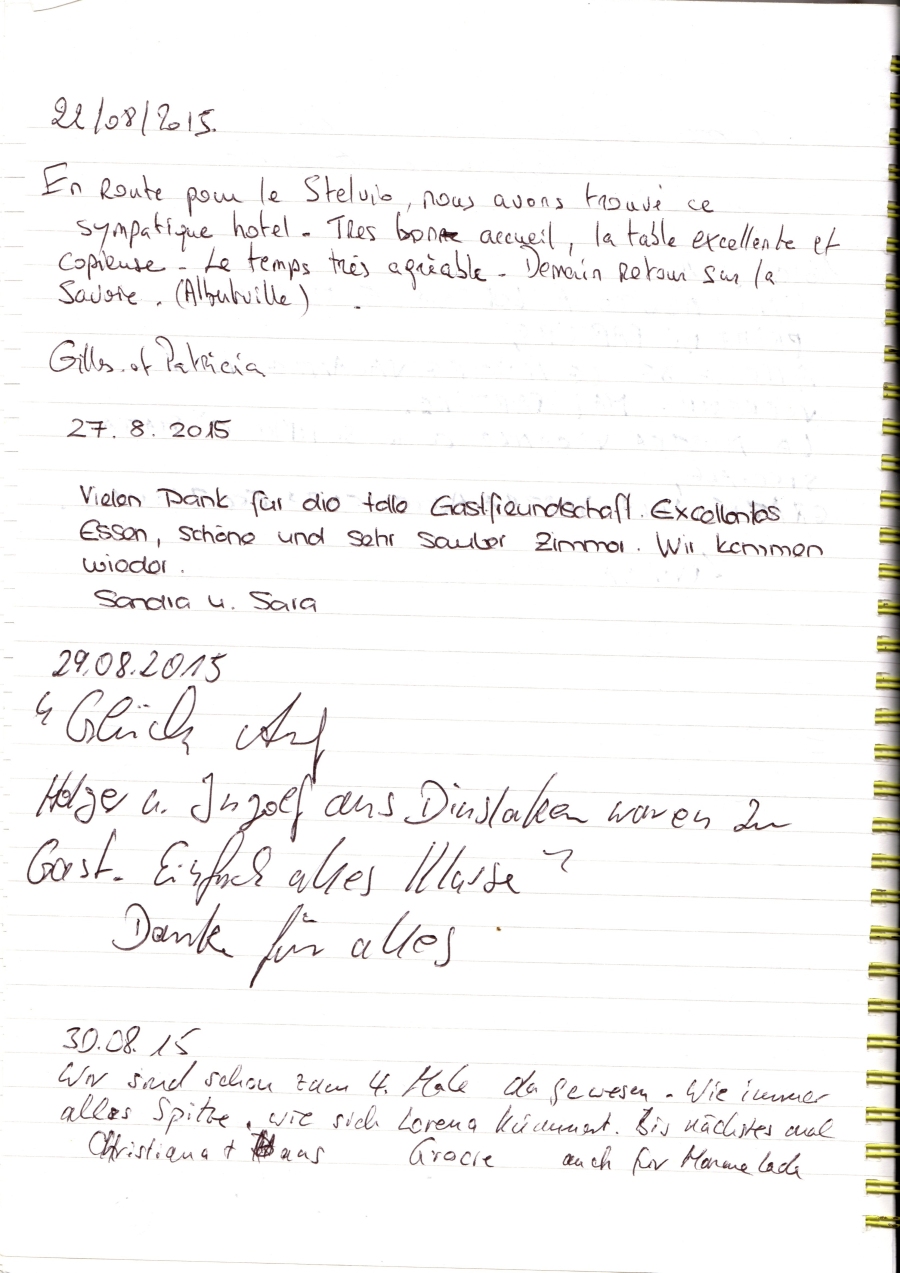 22/08/2015.
En Route pour le Stelvio, nous avons trouvé ce
sympatique hotel. Tres bon accueil, la table excellente et
copieuse. Le temps très agréable. Demain Retour sur la
Savoie. (Albertville)
Gilles et Patricia
27. 8. 2015
Vielen Dank für die tolle Gastfreundschaft. Excellentes
Essen, schöne und sehr sauber Zimmer. Wir kommen
wieder.
Sandra u. Sara
29.08.2015
Glück Auf
Holger u. Ingolf aus Dinslaken waren zu
Gast. Einfach alles Klasse
Danke für alles
30.08.15
Wir sind schon zum 4. Male da gewesen. Wie immer
alles Spitze, wie sich Lorena kümmert. Bis nächstes mal
Christiana + Haus Gracie auch für Marmelade